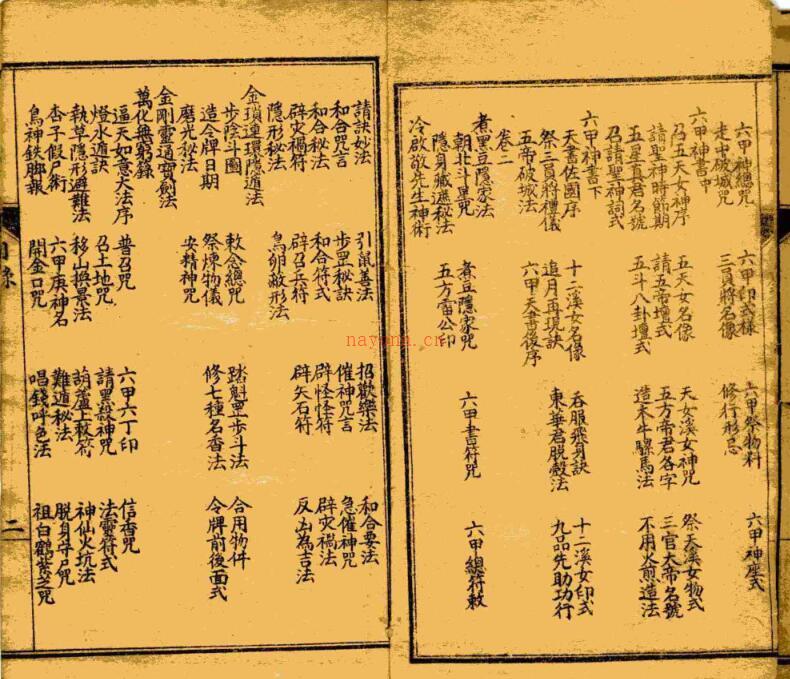 六甲神總咒 六甲印式樣 六甲祭物料 六甲神座式
走中破城咒 三員將名像 修行形忌
六甲神書中
召五天女神序 五天女名像 天女溪女神咒 祭天溪女物式
請聖神時節期 請五帝壇式 五方帝君名字 三官大帝名號
五星真君名號 五斗八卦壇式 造木牛騾馬法 不用火煎造法
召請聖神詞式
六甲神書下
天書佐國序 十二溪女名像 吞服飛身訣 十二溪女印式
祭三員將禮儀 追月再現訣 東華君脫殼法 九品先助功行
五帝破城法 六甲天書後序
卷二
煮黑豆隱家法
朝北斗罡咒 煮豆隱家咒 六甲書符咒 六甲總符敕
隱身藏遁秘法 五方雷公印
冷啟敬先生神術
請訣妙法 引鼠善法 招歡樂法 和合要法
和合咒言 步罡秘訣 催神咒言 急催神咒
和合秘法 和合符式 辟怪怪符 辟灾禍法
辟灾禍符 辟召兵符 辟矢石符 反凶為吉法
隱形秘法 鳥卵敝形法
金鎖連環隱遁法
步陰斗圖 敕念總咒 踏魁罡步斗法 合用物件
造令牌日期 祭煉物儀 修七種名香法 令牌前後面式
磨光秘法 安精神咒
金剛靈通寶劍法
萬化無窮錄
逼天如意大法序 普召咒 六甲六丁印 信香咒
燈水遁訣 召土地咒 請黑殺神咒 法靈符式
執草隱形避難法 移山換景法 葫蘆上敕符 神仙火坑法
杏子假尸術 六甲庚神名 難遁秘法 脫身寻尸咒
鳥神鉄脚報 開金口咒 唱錢呼色法 祖白鶴紫芝咒
目錄
二